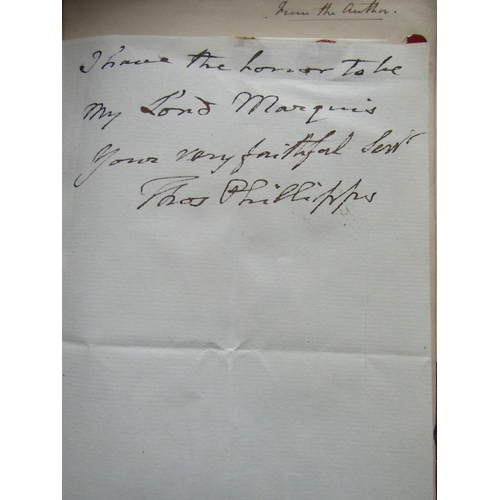 From the Author.
I have the honor to be
My Lord Marquis
Your very faithful Servt
Thos Phillipps